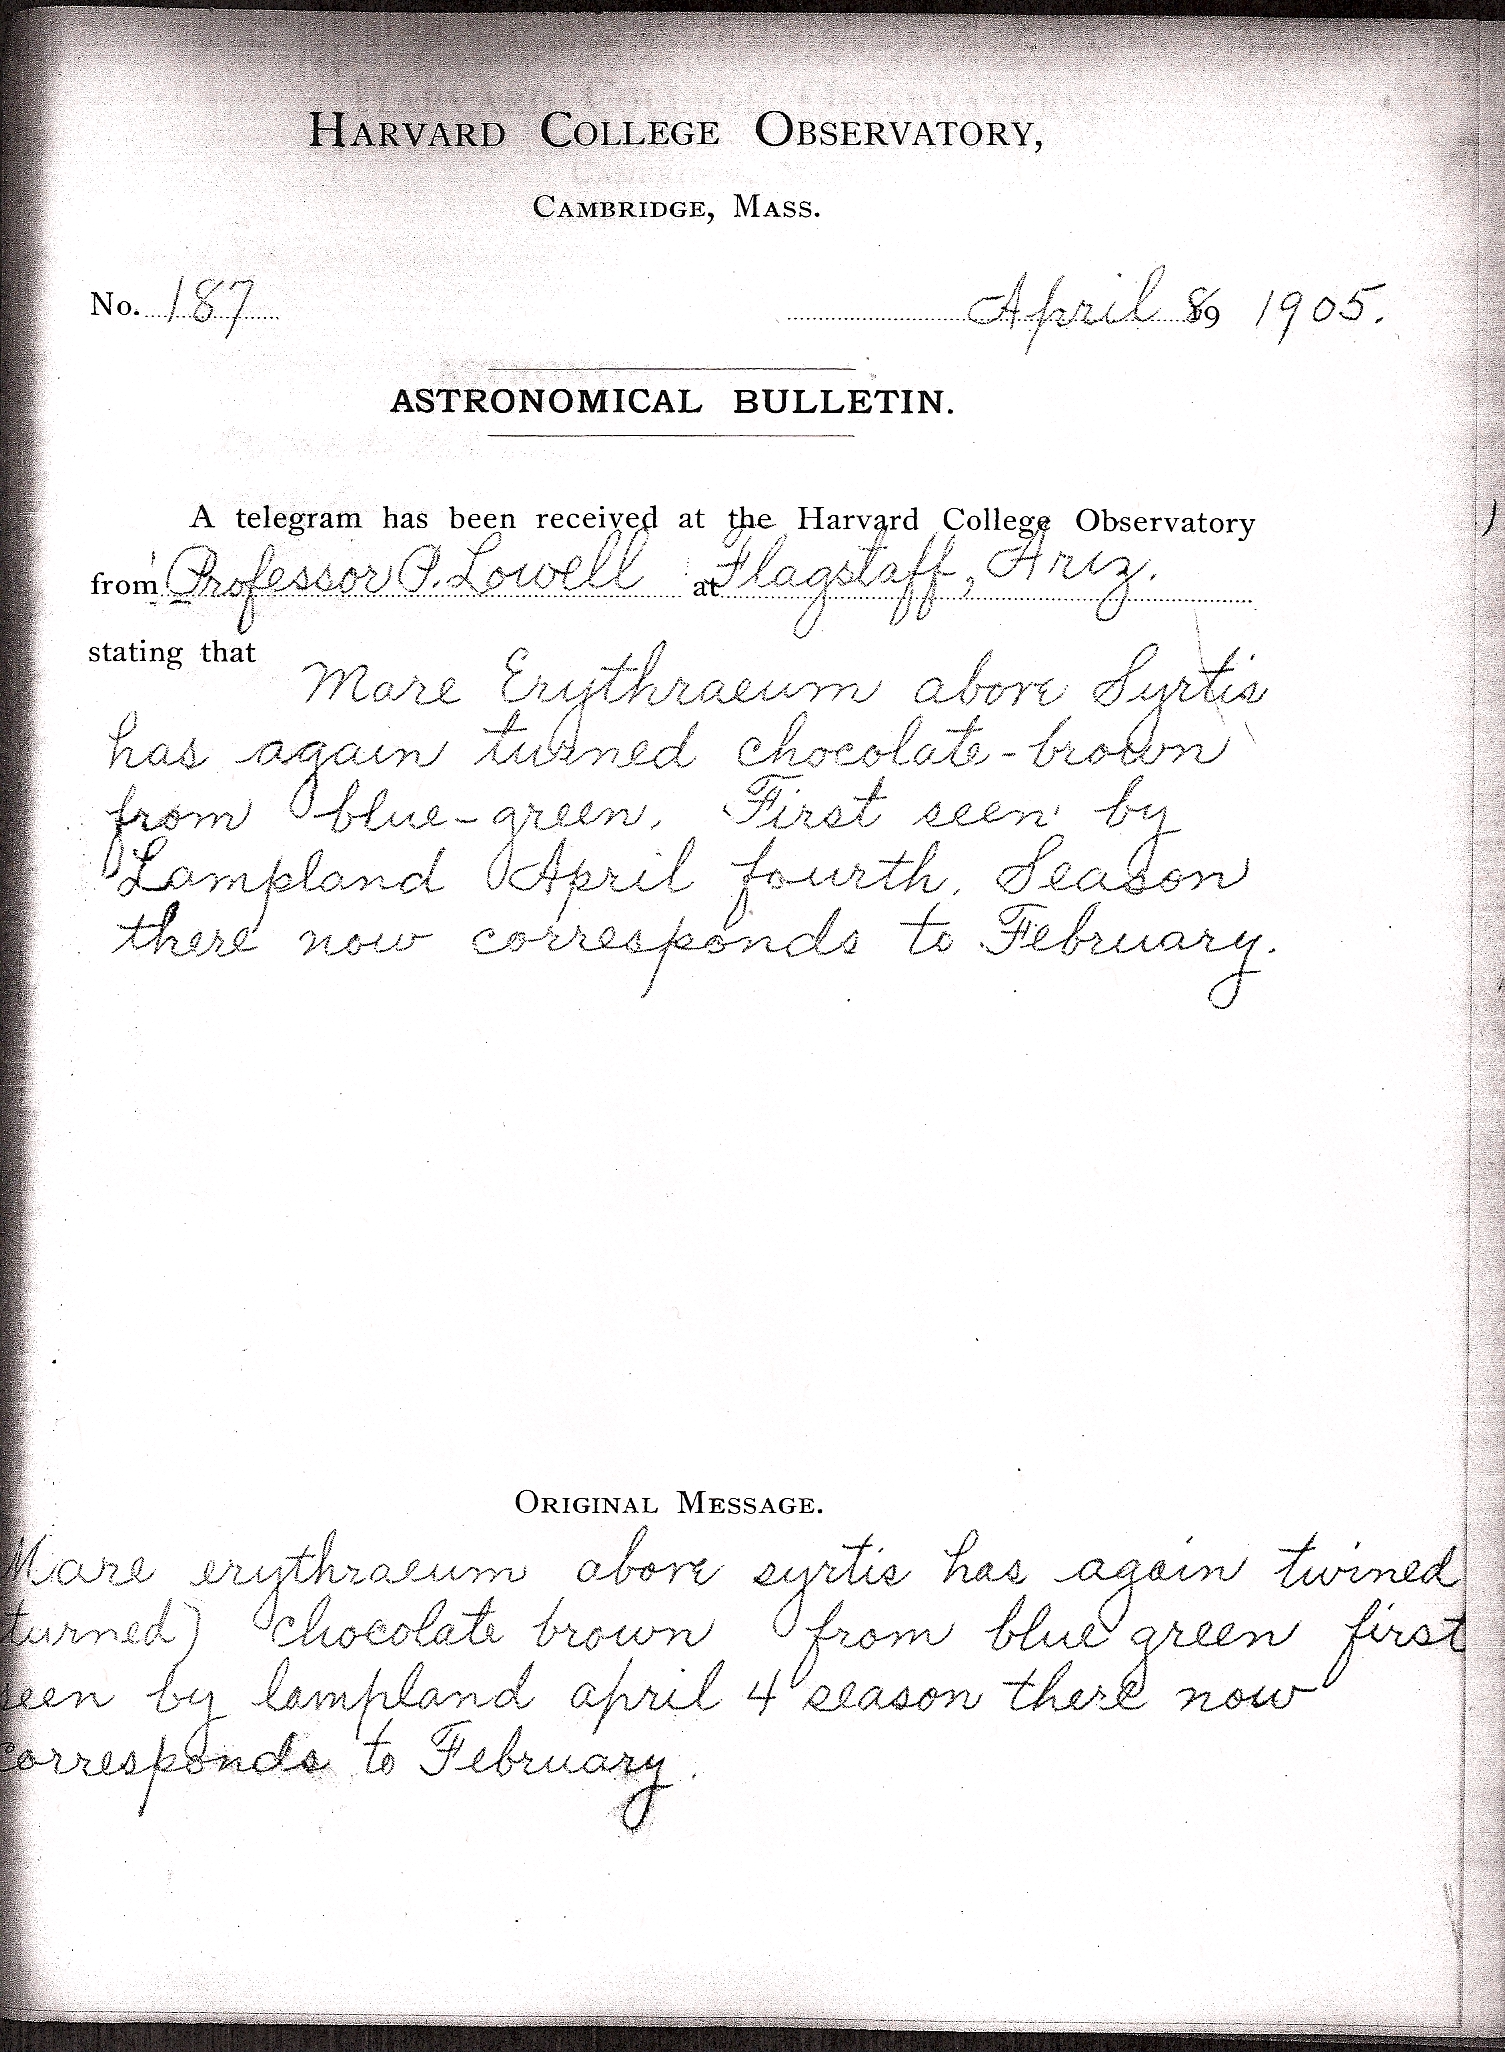 HARVARD COLLEGE OBSERVATORY,
CAMBRIDGE, MASS.
No. 187 April 8, 19 1905.
ASTRONOMICAL BULLETIN.
A telegram has been received at the Harvard College Observatory
from Professor P. Lowell at Flagstaff, Ariz.
stating that
Mare Erythraeum above Syrtis
has again turned chocolate-brown
from blue-green. First seen by
Lampland April fourth. Season
there now corresponds to February.
ORIGINAL MESSAGE.
Mare erythraeum above syrtis has again twined
turned) chocolate brown from blue green first
seen by lampland april 4 season there now
corresponds to February.